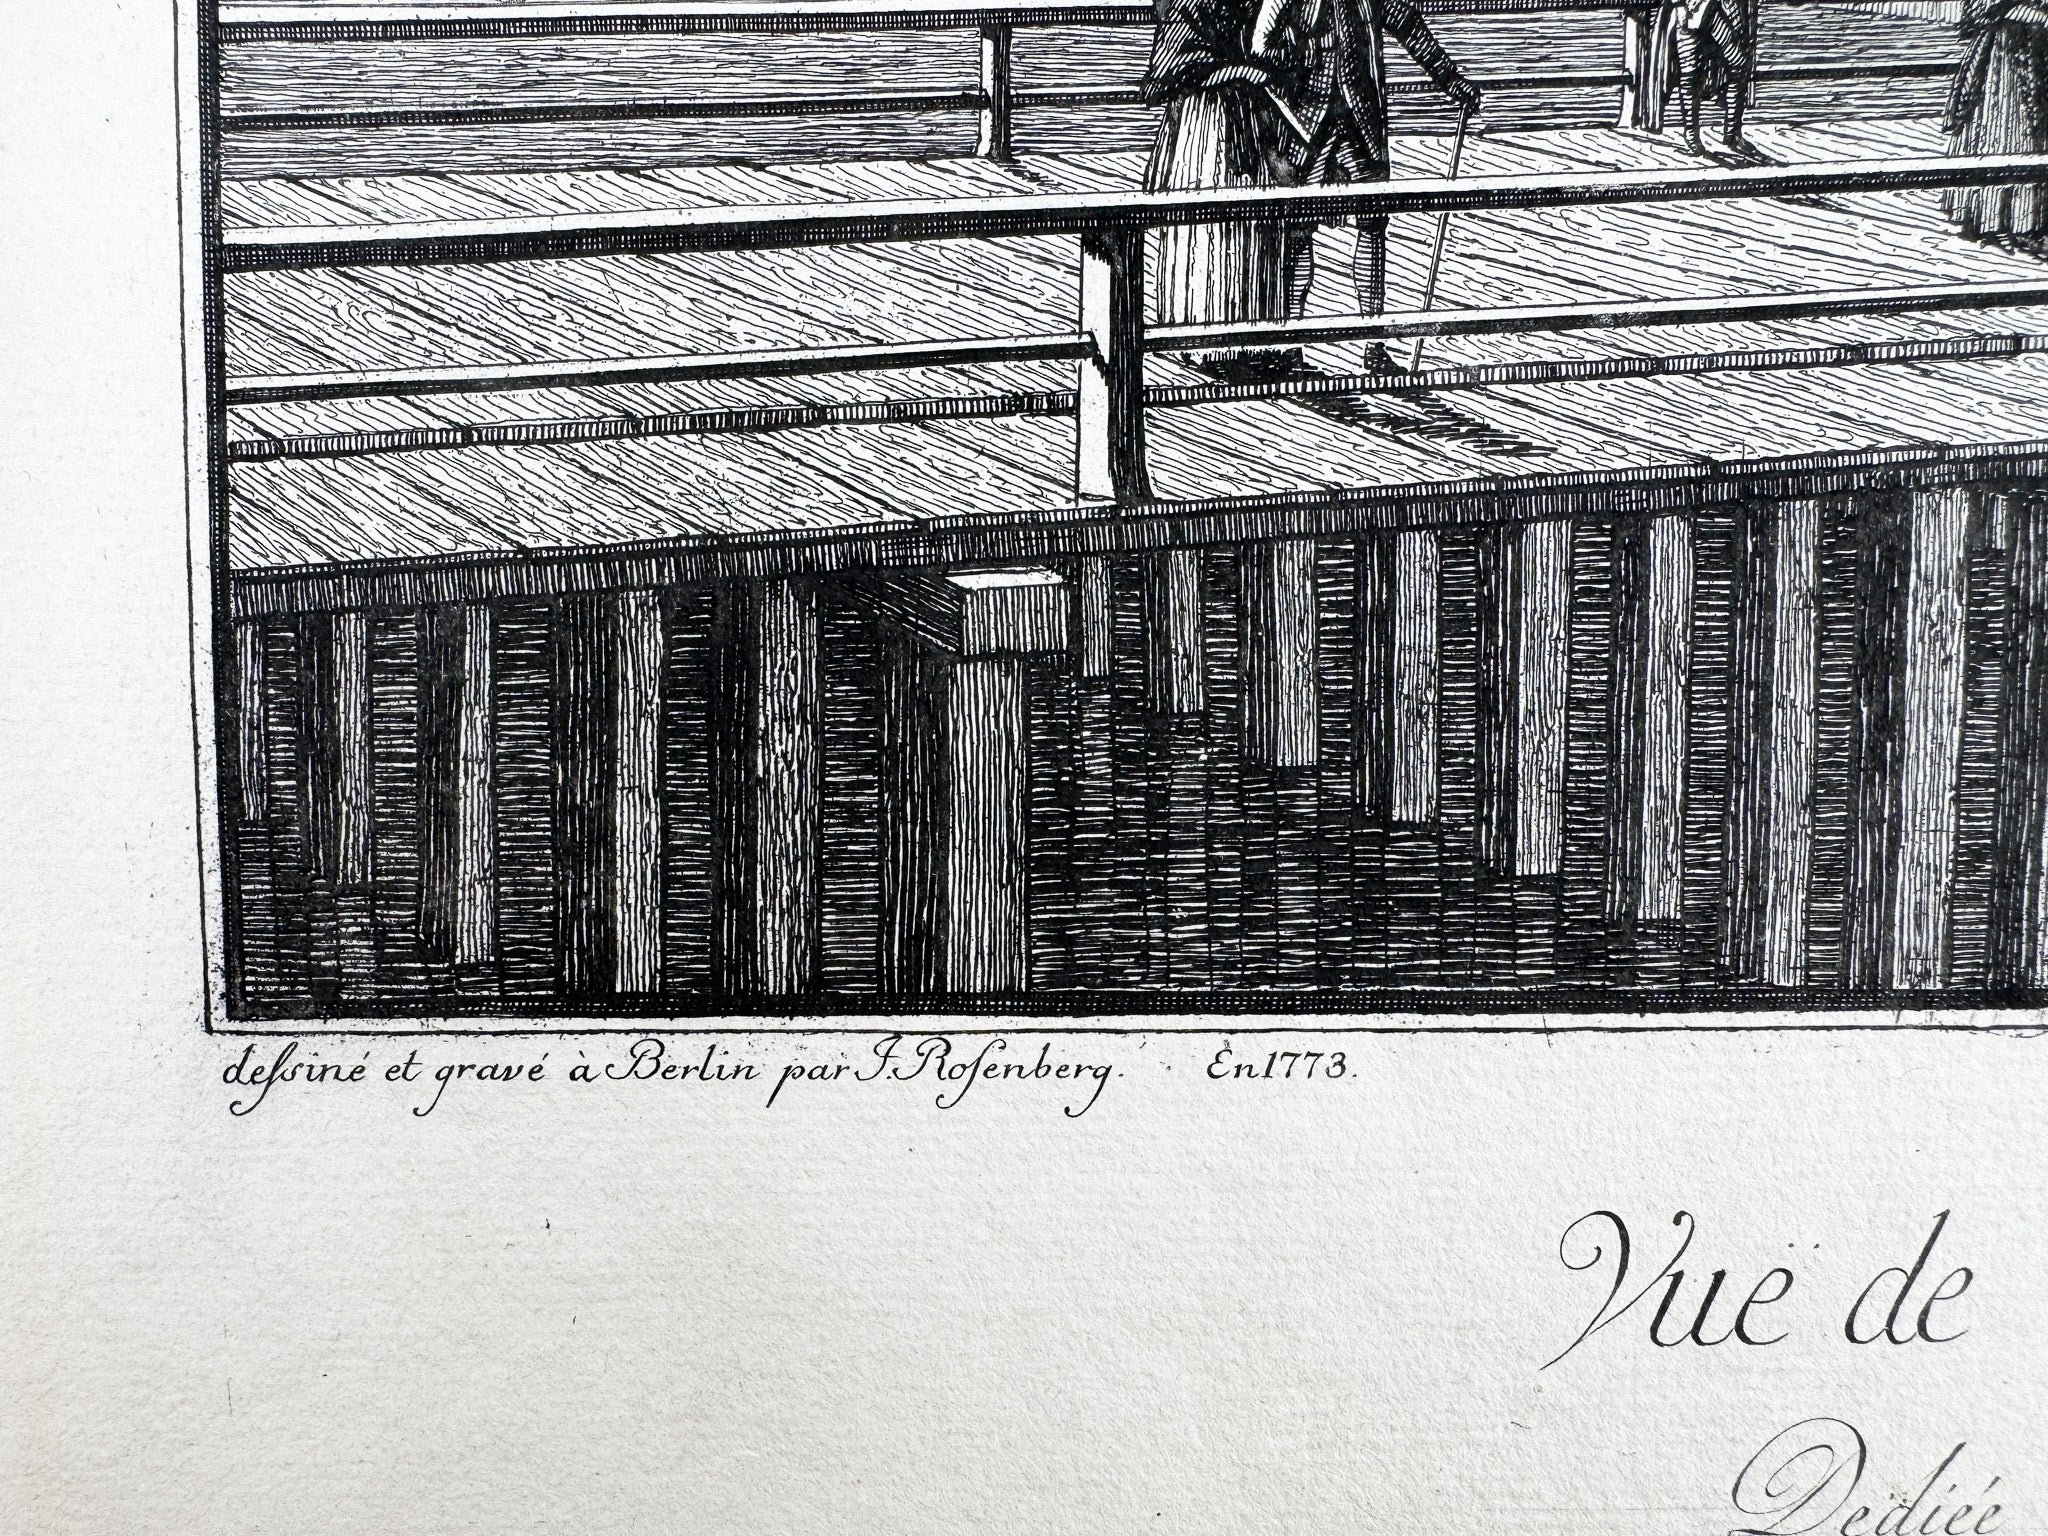 deſsiné et gravé à Berlin par J. Roſenberg. En 1773.
Vuë de
Dediée